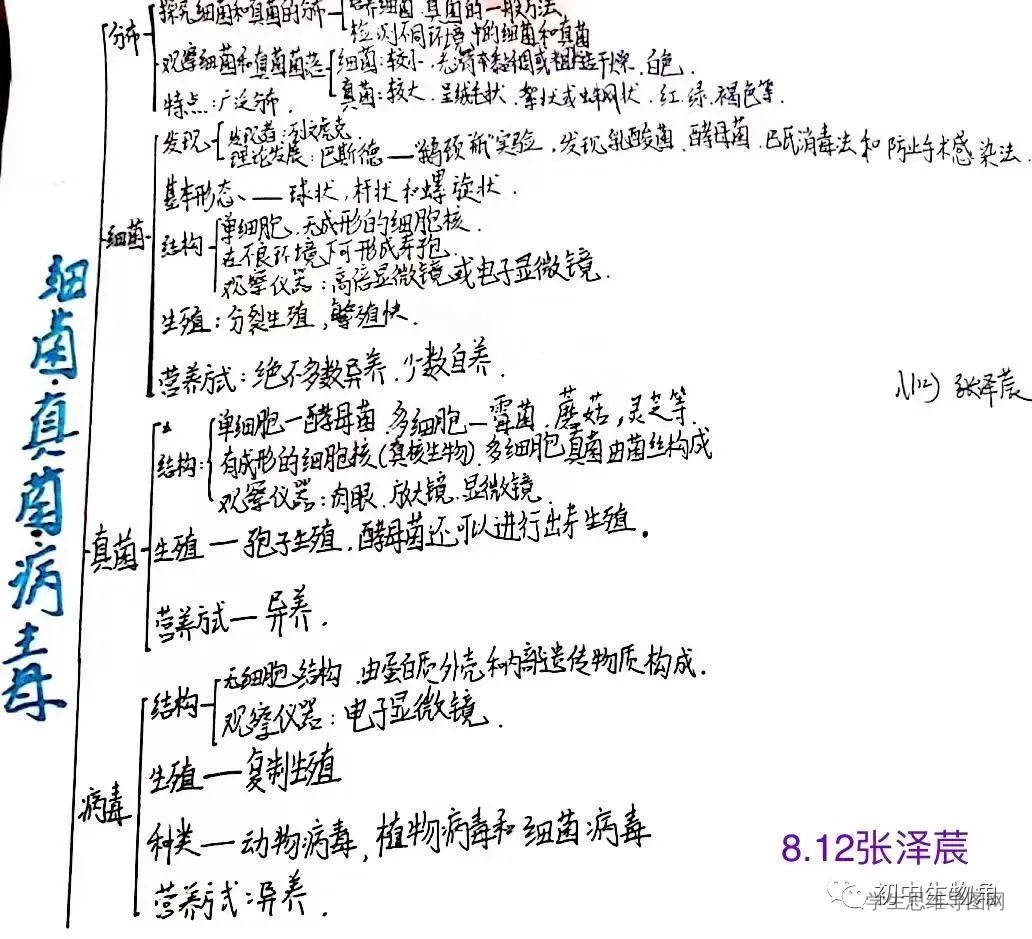 细菌·真菌·病毒
分布
探究细菌和真菌的分布
培养细菌、真菌的一般方法
检测不同环境中的细菌和真菌
观察细菌和真菌菌落
细菌:较小,光滑黏稠或粗糙干燥,白色.
真菌:较大,呈绒毛状,絮状或蛛网状,红.绿.褐色等.
特点:广泛分布.
细菌
发现
发现者:列文虎克.
理论发展:巴斯德—"鹅颈瓶"实验,发现乳酸菌.酵母菌.巴氏消毒法和防止手术感染法.
基本形态、—球状,杆状和螺旋状.
结构
单细胞,无成形的细胞核.
在不良环境下可形成芽孢.
观察仪器:高倍显微镜或电子显微镜.
生殖:分裂生殖,繁殖快.
营养方式:绝不多数异养.少数自养.
八(12) 张泽莀
真菌
结构:
单细胞—酵母菌.多细胞—霉菌.蘑菇,灵芝等.
有成形的细胞核(真核生物).多细胞真菌由菌丝构成
观察仪器:肉眼.放大镜.显微镜.
生殖—孢子生殖.酵母菌还可以进行出芽生殖。
营养方式—异养.
病毒
结构
无细胞结构.由蛋白质外壳和内部遗传物质构成.
观察仪器:电子显微镜.
生殖—复制生殖
种类—动物病毒,植物病毒和细菌病毒
营养方式:异养.
8.12张泽莀
初中生物鱼
学生思维导图网